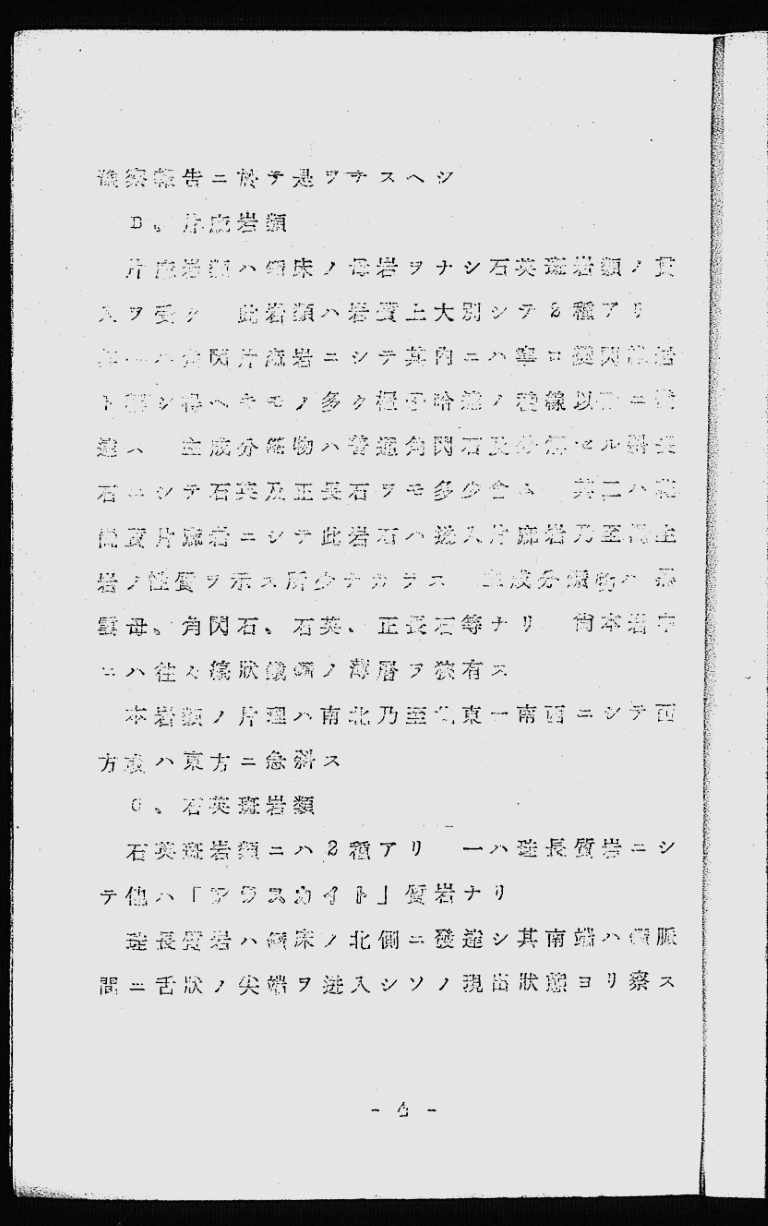 察報告ニ於テ是ヲナスヘシ
B、片麻岩類
片麻岩類ハ鑛床ノ母岩ヲナシ石英斑岩類ノ貫
入ヲ受ク 此岩類ハ岩質上大別シテ2種アリ
其一ハ角閃片麻岩ニシテ其内ニハ寧ロ閃
ト シ得ヘキモノ多ク ノ稜線以 ニ發
達ス 主成分鑛物ハ普通角閃石及分解セル斜長
石ニシテ石英及正長石ヲモ多少含ム 其二ハ
質片麻岩ニシテ此岩石ハ迸入片麻岩乃至
岩ノ性質ヲ示ス所少ナカラス 主成分鑛物ハ黒
雲母、角閃石、石英、正長石等ナリ 尚本岩中
ニハ往々縞狀鐵鑛ノ薄層ヲ挾有ス
本岩類ノ片理ハ南北乃至北東一南西ニシテ西
方或ハ東方ニ急斜ス
C、石英斑岩類
石英斑岩類ニハ2種アリ 一ハ硅長質岩ニシ
テ他ハ「アラスカイト」質岩ナリ
硅長質岩ハ鑛床ノ北側ニ發達シ其南端ハ鑛脈
間ニ舌狀ノ尖端ヲ迸入シソノ現出狀態ヨリ察ス